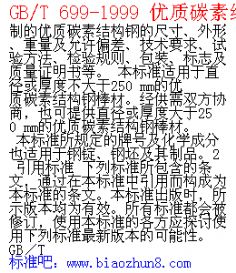 GB/T 699-1999 优质碳素结
制的优质碳素结构钢的尺寸、外形
、重量及允许偏差、技术要求、试
验方法、检验规则、包装、标志及
质量证明书等。 本标准适用于直
径或厚度不大于250 mm的优
质碳素结构钢棒材。经供需双方协
商，也可提供直径或厚度大于25
0 mm的优质碳素结构钢棒材。
本标准所规定的牌号及化学成分
也适用于钢锭、钢坯及其制品。2
引用标准 下列标准所包含的条
文，通过在本标准中引用而构成为
本标准的条文。本标准出版时，所
示版本均为有效。所有标准都会被
修订，使用本标准的各方应探讨使
用下列标准最新版本的可能性。
GB／T
标准吧：www.biaozhun8.com